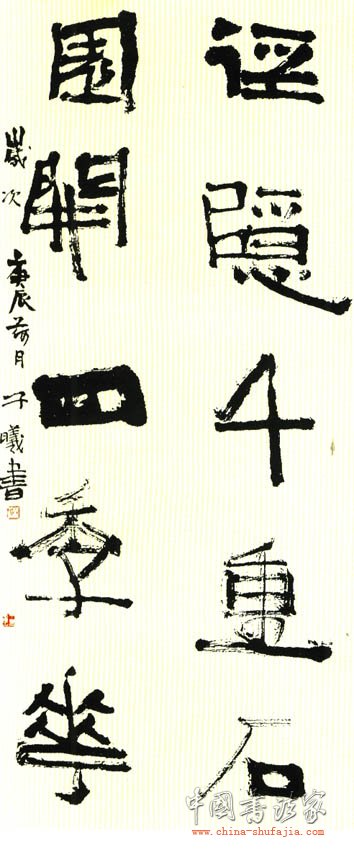 径隱千重石
園開四季華
歲次庚辰荷月子曦書
中國書法家
www.china-shufajia.com